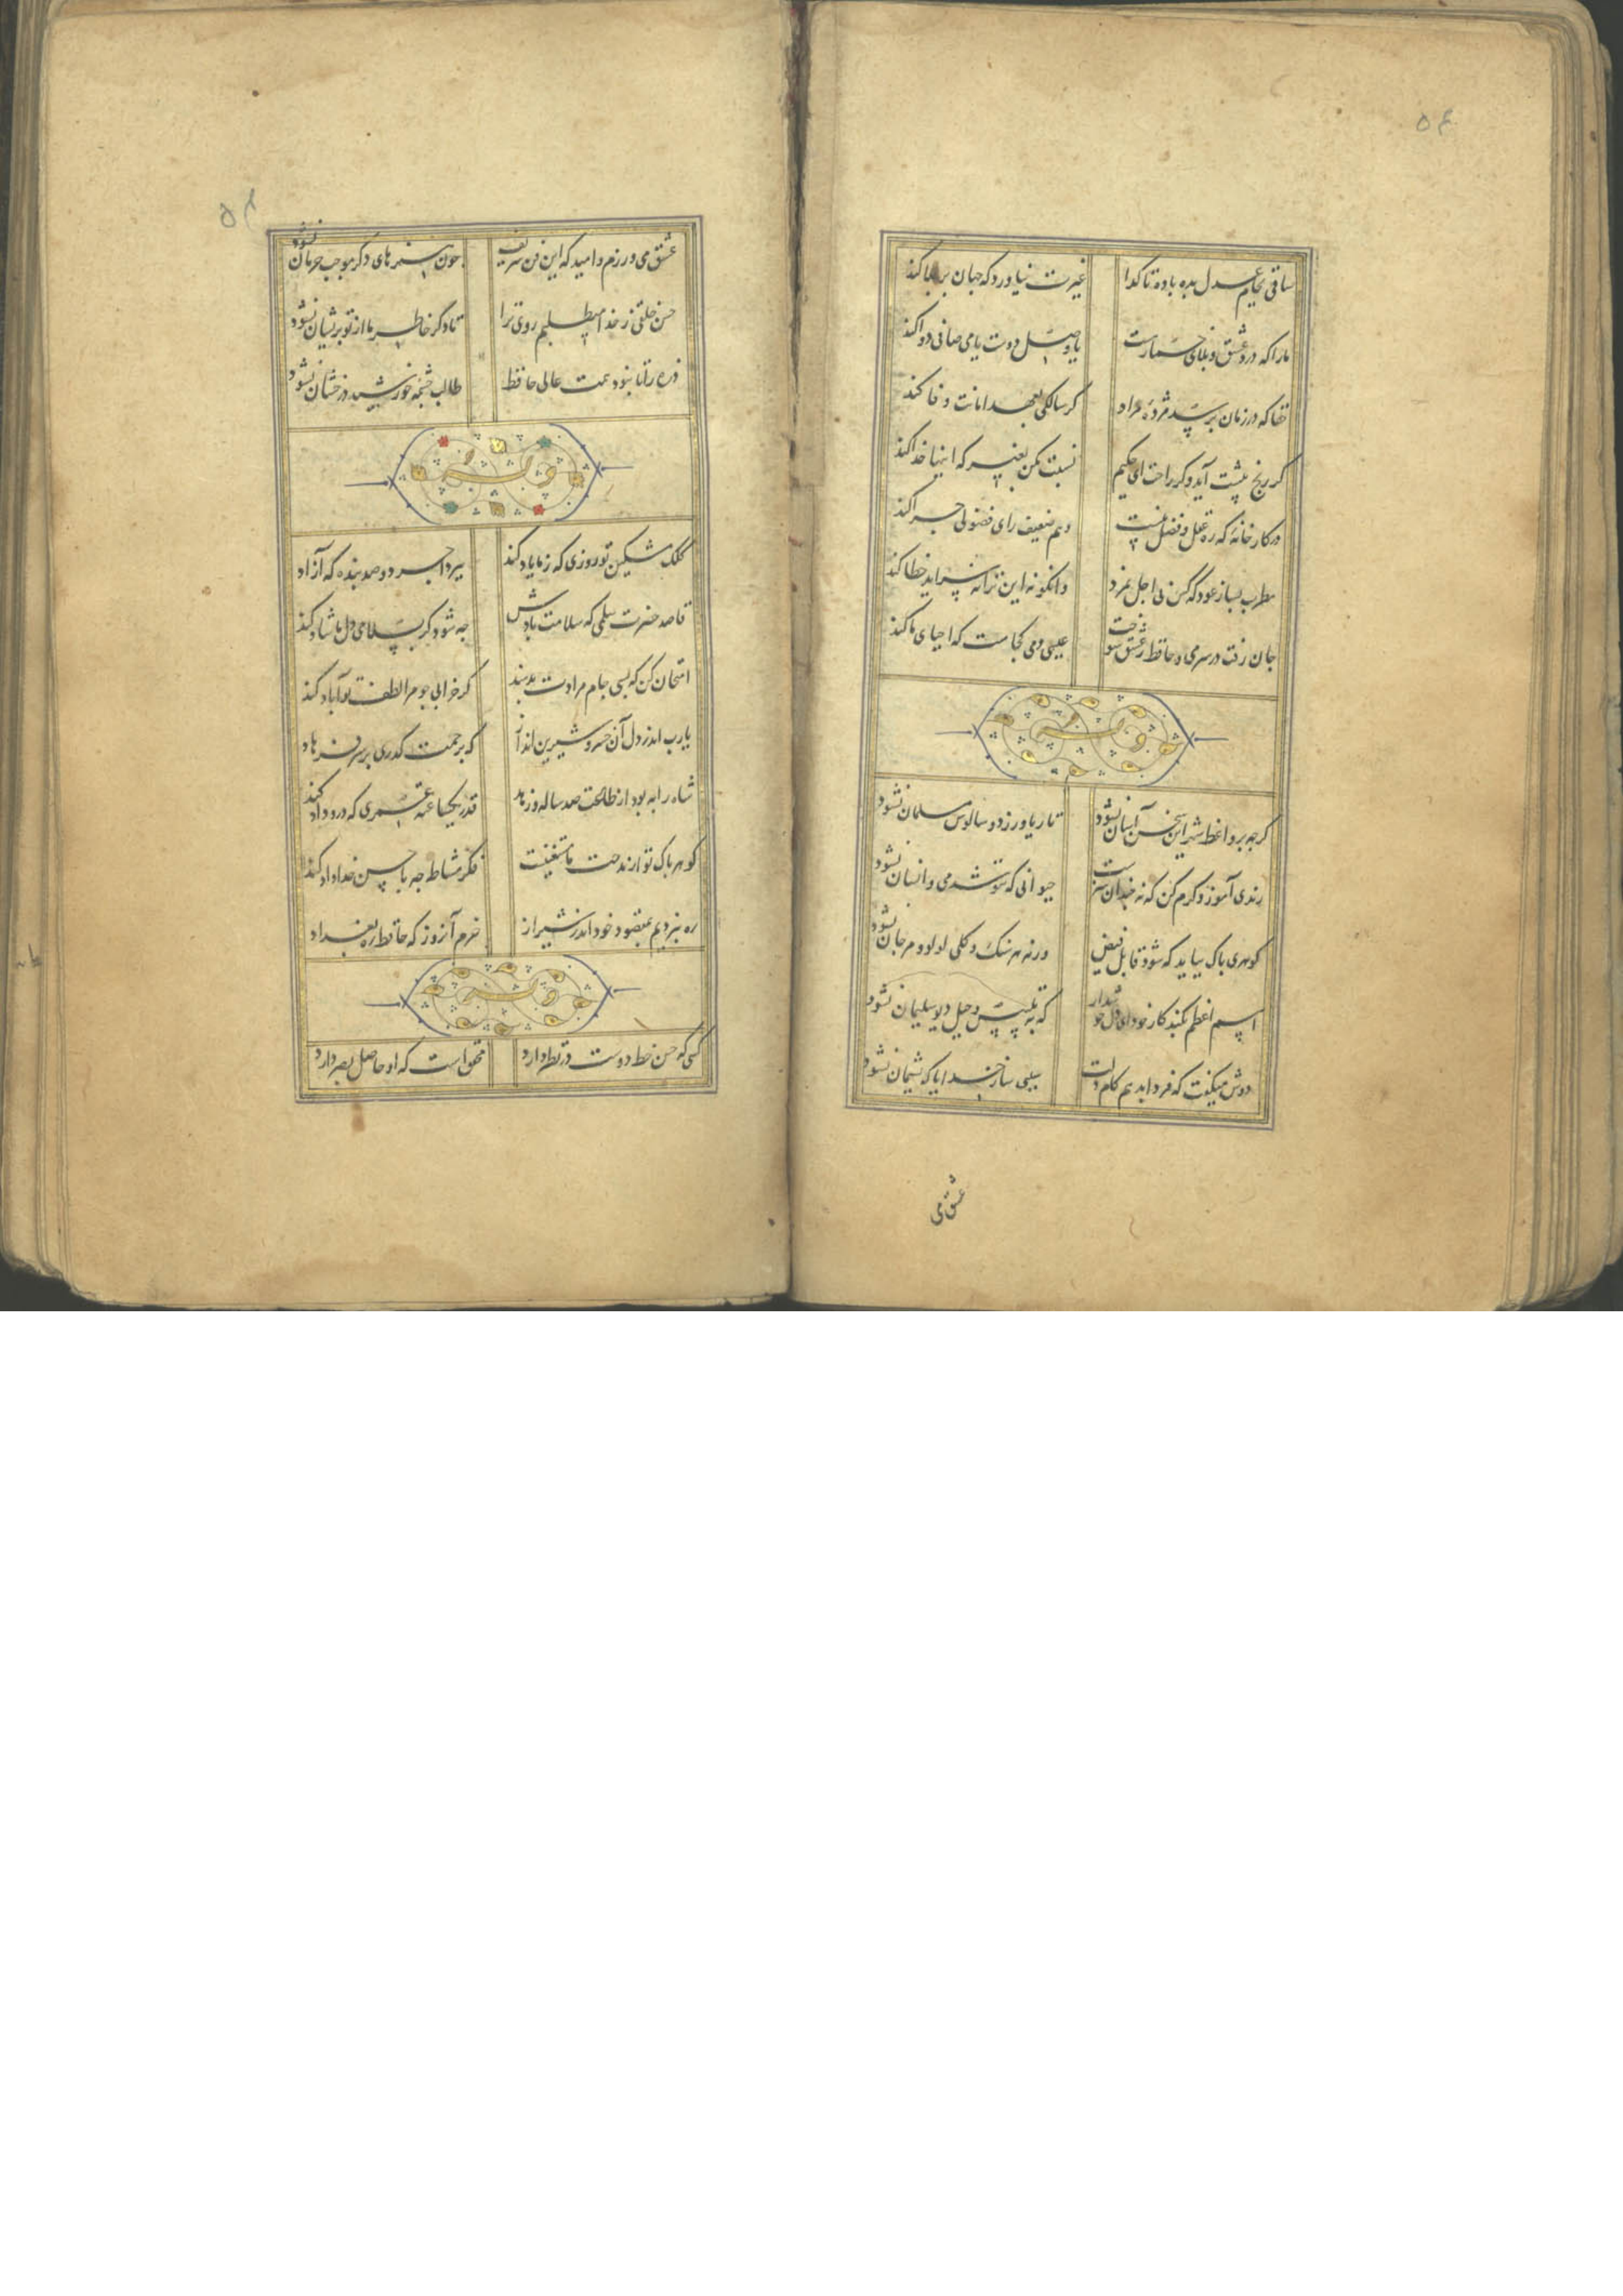 ۵۴
ساقی بجام عدل بده باده تا کدا غیرت نیاورد که جهان پر بلا کند
ما را که درد عشق و بلای خمارست یا وصل دوست یا می صافی دوا کند
حقا که در زمان برسد مژده مراد کر سالکی بعهد امانت وفا کند
کر رنج پیشت آید و کر راحت ای حکیم نسبت مکن بغیر که اینها خدا کند
در کارخانه که ره عقل و فضل نیست وهم ضعیف رای فضولی چرا کند
مطرب بساز عود که کس بی اجل نمرد وانکو نه این ترانه سراید خطا کند
جان رفت در سر می و حافظ ز عشق سوخت عیسی دمی کجاست که احیای ما کند
وله
کرچه بر واعظ شهر این سخن آسان نشود تا ریا ورزد و سالوس مسلمان نشود
رندی آموز و کرم کن که نه چندان هنرست حیوانی که ننوشد می و انسان نشود
کوهری پاک بباید که شود قابل فیض ورنه هر سنک و کلی لولو و مرجان نشود
اسم اعظم بکند کار خود ای دل خوشدار که به تلبیس و حیل دیو سلیمان نشود
دوش میکفت که فردا بدهم کام دلت سببی ساز خدایا که پشیمان نشود
عشق می
۵۴
عشق می ورزم و امید که این فن شریف چون هنرهای دکر موجب حرمان نشود
حسن خلقی ز خدا میطلبم روی ترا تا دکر خاطر ما از تو پریشان نشود
ذره را تا نبود همت عالی حافظ طالب چشمه خورشید درخشان نشود
وله
کلک مشکین تو روزی که ز ما یاد کند ببرد اجر دو صد بنده که آزاد
قاصد حضرت سلمی که سلامت بادش چه شود کر بسلامی دل ما شاد کند
امتحان کن که بسی جام مرادت بدهند کر خرابی چو مرا لطف تو آباد کند
یارب اندر دل آن خسرو شیرین انداز که برحمت کذری بر سر فرهاد
شاه را به بود از طاعت صد ساله و زهد قدر یکساعته عمری که درو داد کند
کوهر پاک تو از مدحت ما مستغنیست فکر مشاطه چه با حسن خداداد کند
ره نبردیم بمقصود خود اندر شیراز خرم آنروز که حافظ ره بغداد
وله
کسی که حسن خط دوست در نظر دارد محققست که او حاصل بصر دارد